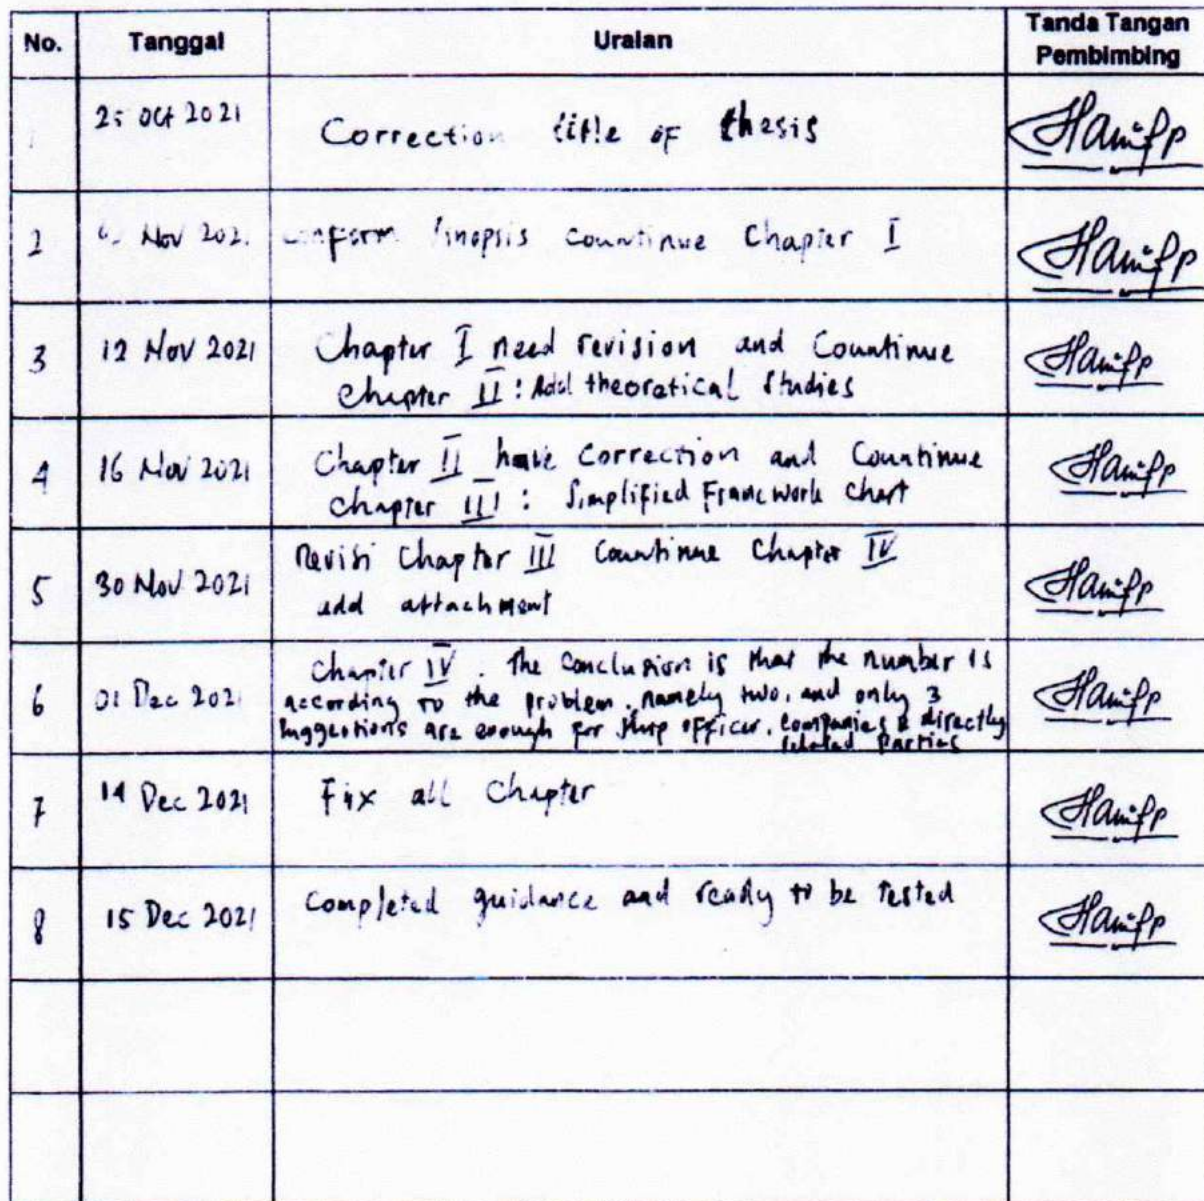 No. Tanggal Uraian Tanda Tangan
Pembimbing
Oct 2021 Correction title of thesis
2 Nov 202 Sinopsis Countinue Chapter I
3 12 Nov 2021 Chapter I need revision and Countinue
Chapter II : Add theoratical studies
4 16 Nov 2021 Chapter II have Correction and Countinue
Chapter III : Simplified Framework Chart
5 30 Nov 2021 Revisi Chapter III Countinue Chapter IV
add attachment
6 01 Dec 2021 Chapter IV . The Conclusion is that the number is
according to the problem, namely two, and only 3
suggestions are enough for ship officer, companies & directly
related parties
7 14 Dec 2021 Fix all Chapter
8 15 Dec 2021 Completed guidance and ready to be tested